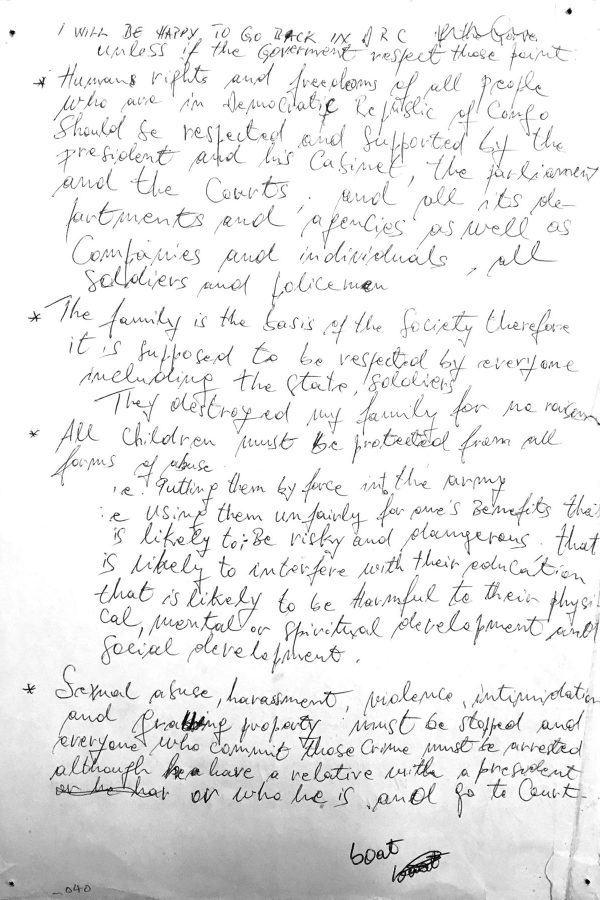 I WILL BE HAPPY TO GO BACK IN DRC
unless if the Goverment respect those point
* Humans rights and freedoms of all people
who are in Democratic Republic of Congo
Should be respected and supported by the
president and his Cabinet, the parliament
and the Courts, and all its de-
partments and agencies as well as
Companies and individuals, all
Soldiers and policeman
* The family is the basis of the Society therefore
it is supposed to be respected by everyone
including the state, soldiers
They destroyed my family for no reason
* All Children must be protected from all
forms of abuse
i.e. Putting them by force into the army
i.e Using them unfairly for one's Benefits that
is likely to; Be risky and dangerous. that
is likely to interfere with their education
that is likely to be Harmful to their physi
cal, mental or spiritual development and
Social development.
* Sexual abuse, harassment, violence, intimidation
and property must be stopped and
everyone who commit those Crime must be arrested
although have a relative with a president
or who he is and go to Court
boat
040